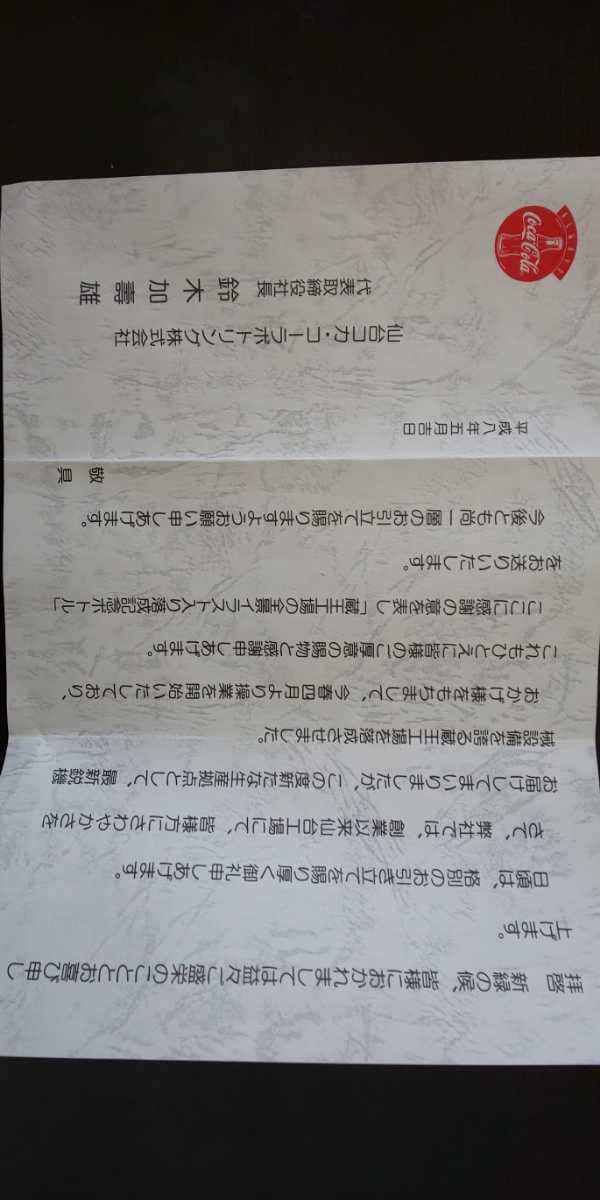 拝啓 新緑の候、皆様におかれましては益々ご盛栄のこととお喜び申し
上げます。
日頃は、格別のお引き立てを賜り厚く御礼申しあげます。
さて、弊社では、創業以来仙台工場にて、皆様方にさわやかさを
お届けしてまいりましたが、この度新たな生産拠点として、最新鋭機
械設備を誇る蔵王工場を落成させました。
おかげ様をもちまして、今春四月より操業を開始いたしており、
これもひとえに皆様のご厚意の賜物と感謝申しあげます。
ここに感謝の意を表し「蔵王工場の全景イラスト入り落成記念ボトル」
をお送りいたします。
今後とも尚一層のお引立てを賜りますようお願い申しあげます。
敬具
平成八年五月吉日
仙台コカ・コーラボトリング株式会社
代表取締役社長 鈴木加壽雄
Coca-Cola
ALWAYS